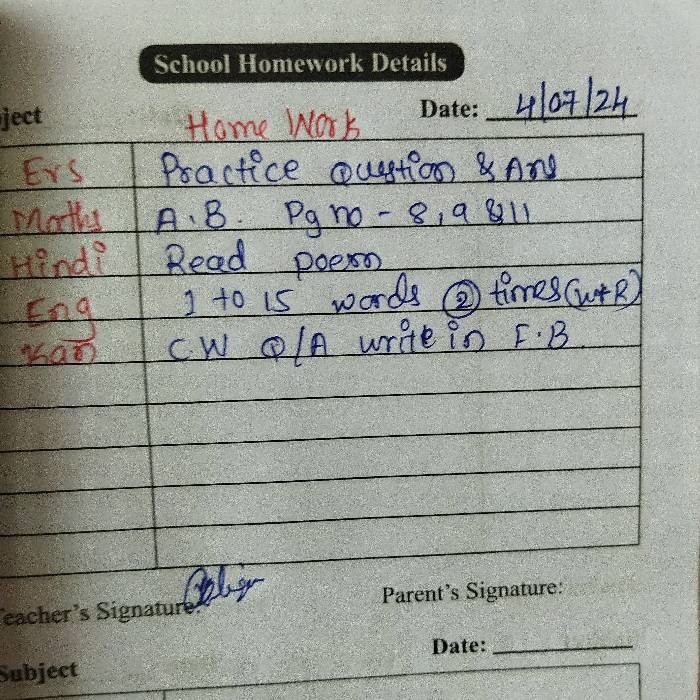 School Homework Details
ject Date: 4/07/24
Home Work
Evs Practice Question & Ans
Maths A.B. Pg no - 8, 9 & 11
Hindi Read poem
Eng 1 to 15 words ② times (W+R)
Kan C.W Q/A write in F.B
eacher's Signature: Parent's Signature:
Date:
Subject